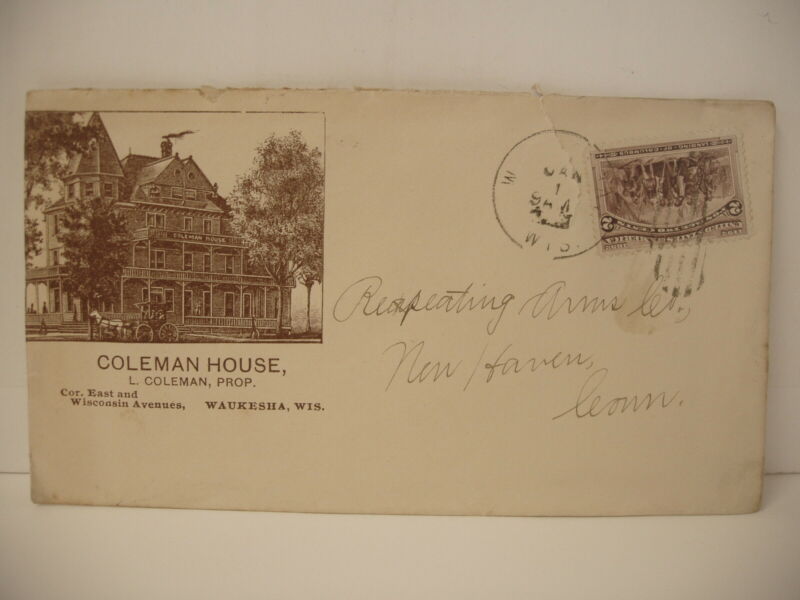 COLEMAN HOUSE
COLEMAN HOUSE,
L. COLEMAN, PROP.
Cor. East and
Wisconsin Avenues, WAUKESHA, WIS.
W
JAN
1
WIS.
LANDING OF COLUMBUS
2 2
Reapeating Arms Co.,
New Haven,
Conn.